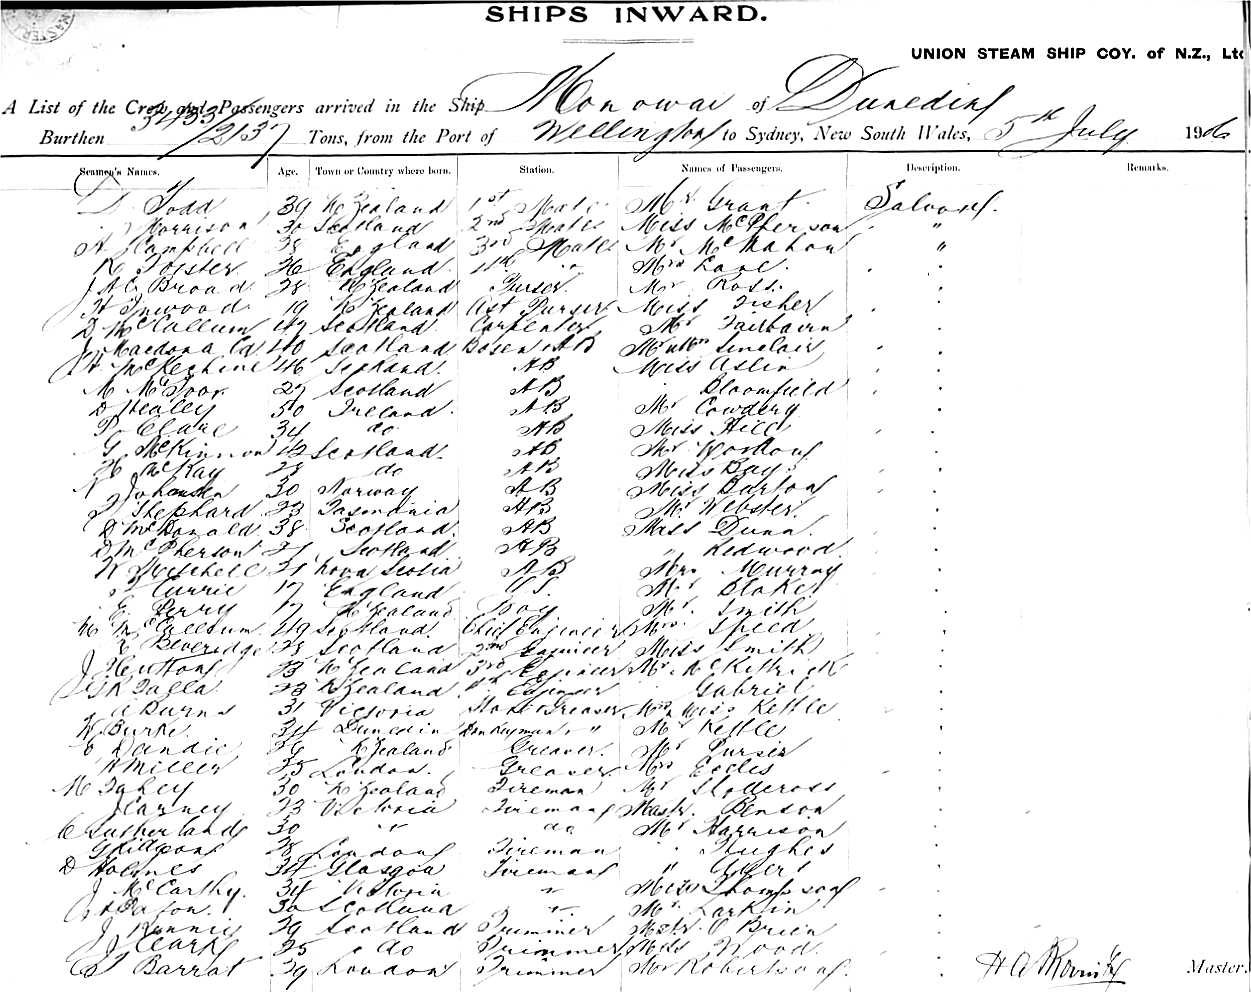 SHIPS INWARD.
UNION STEAM SHIP COY. of N.Z., Ltd
A List of the Crew and Passengers arrived in the Ship Monowai of Dunedin
Burthen 3433/2137 Tons, from the Port of Wellington to Sydney, New South Wales, 5th July 1906
Seamen's Names. Age. Town or Country where born. Station. Names of Passengers. Description. Remarks.
D Todd 39 N Zealand 1st Mate Mr Grant Saloon
Morrison 30 Scotland 2nd Mates Miss McPherson "
A Campbell 28 England 3rd Mates Mr McMahon "
R Forster 26 England 4th " Mrs Lane
J Broad 28 N Zealand Purser Mr Ross
H Inwood 19 N Zealand Ast Purser Miss Fisher
D McCallum 42 Scotland Carpenter Mr Fairbairn
J Macdonald 40 Scotland Bosen AB Sinclair
McKechnie 46 AB Miss Aslin
M 27 Scotland AB Bloomfield
D Healey 50 Ireland AB Mr Cowdery
P Clare 34 do AB Miss Hill
G McKinnon 42 Scotland AB Mr
McKay 28 do AB Miss Bay
Johansen 30 Norway AB Miss Barton
Shephard 23 Tasmania AB Mr Webster
D McDonald 38 Scotland AB Miss Dunn
D McPherson Scotland AB " Redwood
Mitchell Nova Scotia AB Mrs Murray
Currie 17 England OS Mr Blake
E Perry 17 N Zealand Boy Mr Smith
McCallum 49 Scotland Chief Engineer Speed
Beveridge 28 Scotland 2nd Engineer Miss Smith
J Hutton 23 N Zealand 3rd Engineer Mr McKittrick
23 N Zealand 4th Engineer Gabriel
A Burns 31 Victoria Greaser Miss Kettle
W Burke 34 Dunedin Donkeyman " Mr Kettle
Dandie 39 N Zealand Greaser Mr Purser
Miller 25 London Greaser Mrs Eccles
M Fahey 30 N Zealand Fireman Mr
J Carney 23 Victoria Fireman Mastr Benson
C Sutherland 30 " do Mr Harrison
28 London Fireman Hughes
D Holmes 34 Glasgow Fireman "
J McCarthy 34 Victoria " Miss Thompson
30 Scotland " Mr Larkin
J Rennie 39 Scotland Trimmer Mstr O'Brien
J Clark 25 do Trimmer Miss Wood
Barrat 39 London Trimmer Mr Robertson Master.